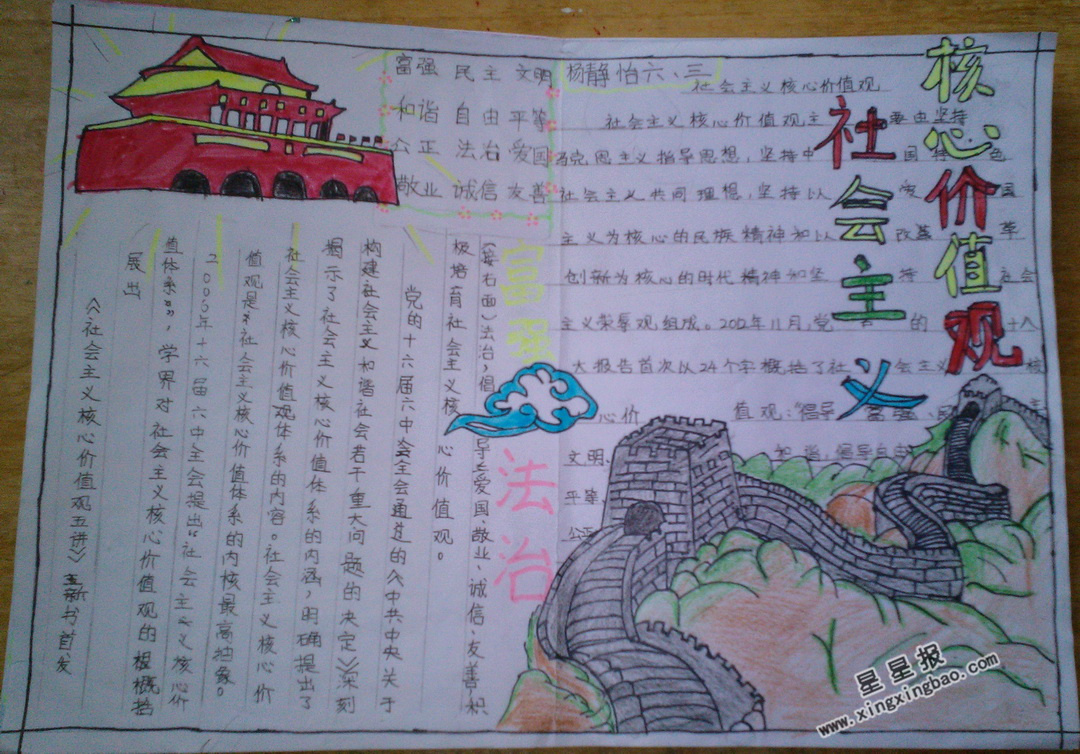 核心价值观
社会主义
富强 民主 文明
和谐 自由 平等
公正 法治 爱国
敬业 诚信 友善
杨静怡六、三
社会主义核心价值观
社会主义核心价值观主要由坚持
马克思主义指导思想，坚持中国特色
社会主义共同理想，坚持以爱国
主义为核心的民族精神和以改革
创新为核心的时代精神和坚持社会
主义荣辱观组成。2012年11月，党的十八
大报告首次以24个字概括了社会主义核
心价值观：“倡导富强、民主
文明、和谐，倡导自由
平等、
公正
富强
法治
（接右面）法治，倡导爱国、敬业、诚信、友善积
极培育社会主义核心价值观。
党的十六届六中全会通过的《中共中央关于
构建社会主义和谐社会若干重大问题的决定》深刻
揭示了社会主义核心价值体系的内涵，明确提出了
社会主义核心价值观体系的内容。社会主义核心价
值观是“社会主义核心价值体系的内核最高抽象。
2006年十六届六中全会提出“社会主义核心价
值体系”，学界对社会主义核心价值观的概括
展出
《社会主义核心价值观五讲》新书首发
星星报
www.xingxingbao.com